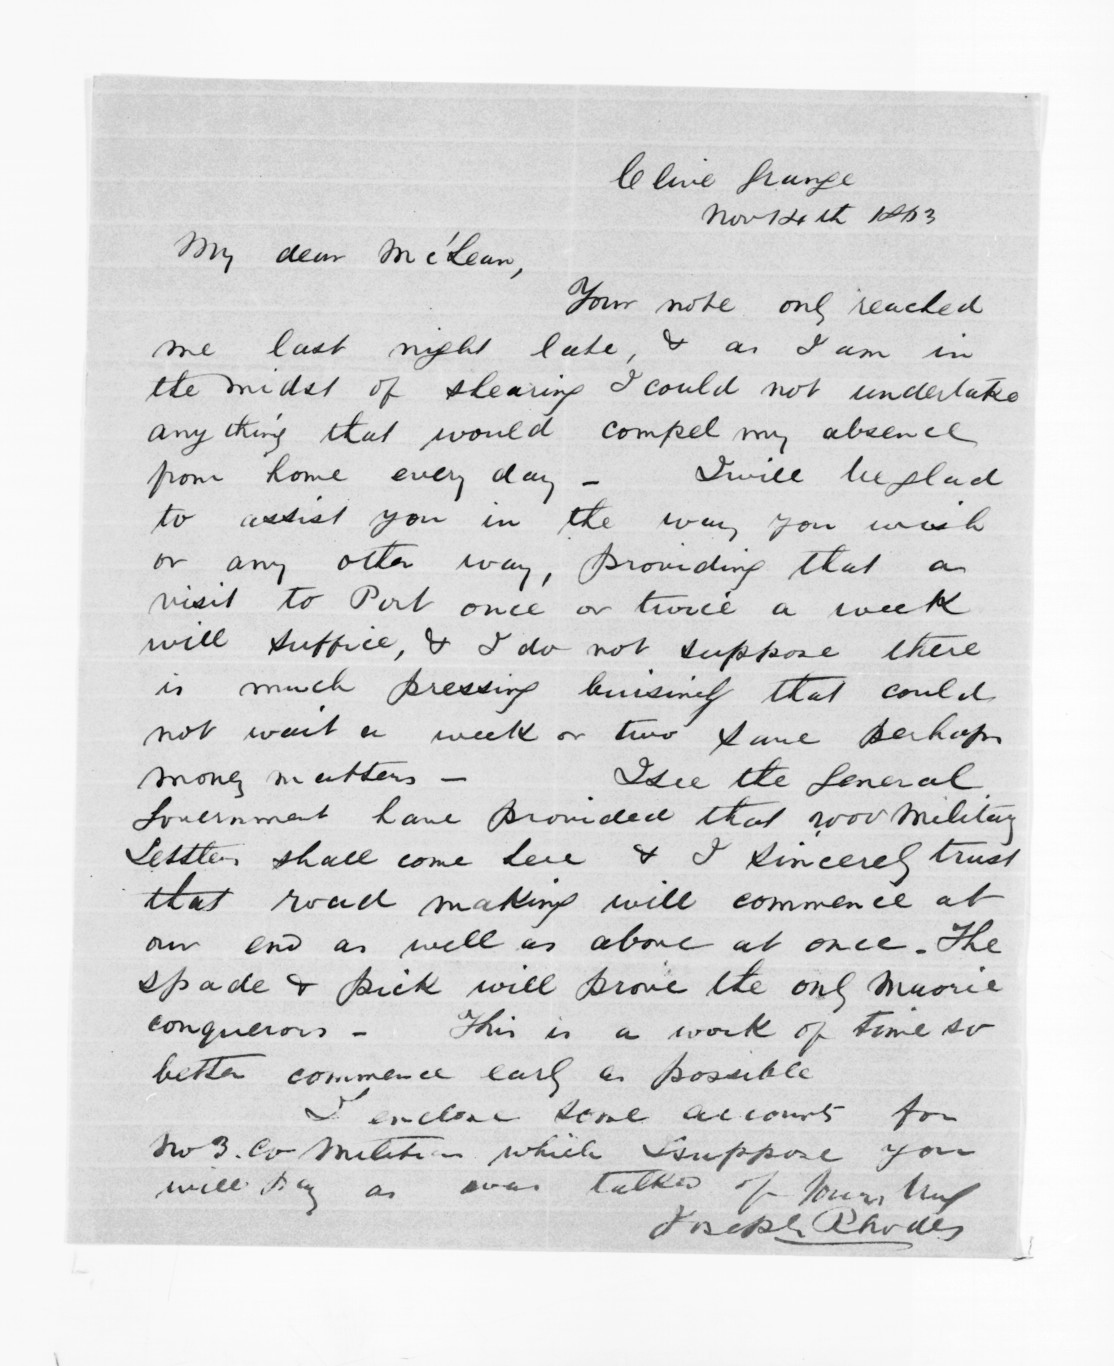 Clive Grange
Nov 14th 1863
My dear McLean,
Your note only reached
me last night late, & as I am in
the midst of shearing I could not undertake
any thing that would compel my absence
from home every day - I will be glad
to assist you in the way you wish
or any other way, providing that a
visit to Port once or twice a week
will suffice, & I do not suppose there
is much pressing buisiness that could
not wait a week or two save perhaps
money matters - I see the General
Government have provided that 2000 Military
Settlers shall come here & I sincerely trust
that road making will commence at
our end as well as above at once - The
spade & pick will prove the only Maorie
conquerors - This is a work of time so
better commence early as possible
I enclose some accounts for
No 3. Co Militia which I suppose you
will pay as was talked of Yours truly
Joseph Rhodes